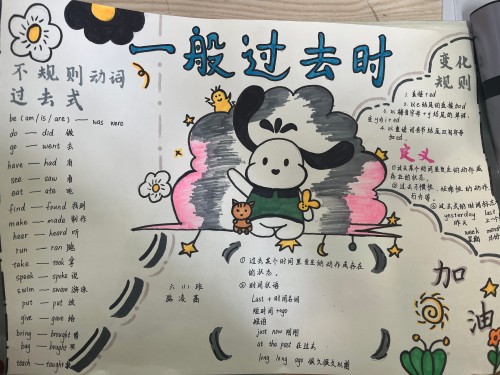 一般过去时
不规则动词
过去式
be (am/is/are) — was were
do — did 做
go — went 去
have — had 有
see — saw 看
eat — ate 吃
find — found 找到
make — made 制作
heer — heard 听
run — ran 跑
take — took 拿
speak — spoke 说
swim — swam 游泳
put — put 放
give — gave 给
bring — brought
buy — bought 买
teach — taught
变化
规则
1. 直接+ed
2. 以e结尾的直接加d
3. 以辅音字母+y结尾的单词,
变y为i+ed
4. 以重读闭音节结尾双写字母
加ed.
定义
①过去某个时间里发生的动作或
存在的状态.
②过去习惯性、经常性的动作、
行为等。
③过去式的时间
yesterday last
昨天
week month
①过去某个时间里发生的动作或存在
的状态。
②时间状语
Last + 时间名词
短时间+ago
短语
just now 刚刚
at the past 在过去
long long ago 很久很久以前
六小班
加油